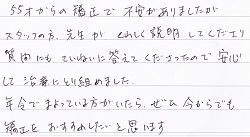 55才からの矯正で不安がありましたが
スタッフの方、先生が くわしく説明してくださり
質問にもていねいに答えてくださったので安心
して治療にとり組めました。
年令でまよっている方がいたら、ぜひ今からでも
矯正をおすすめしたいと思います